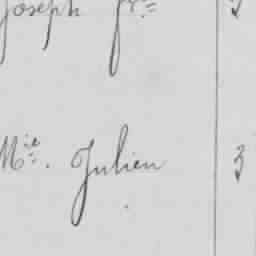 Joseph fre
Mie. Julien 3